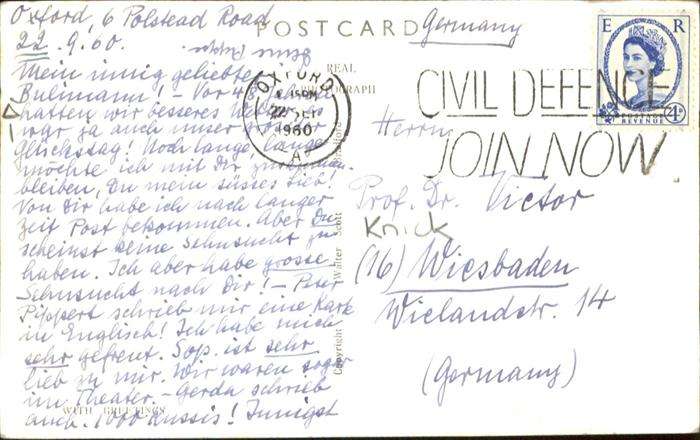 Oxford, 6 Polstead Road
22.9.60.
POSTCARD
Germany
REAL
PHOTOGRAPH
Mein innig geliebter
Bulimann! – Vor 4
hatten wir besseres
war ja auch unser
Glückstag! Noch lange, lange
möchte ich mit Dir
bleiben, Du mein süsses Lieb!
Von Dir habe ich nach langer
Zeit Post bekommen. Aber Du
scheinst keine Sehnsucht zu
haben. Ich aber habe grosse
Sehnsucht nach Dir! – Peter
Pippert schrieb mir eine Karte
in Englisch! Ich habe mich
sehr gefreut. Sop. ist sehr
lieb zu mir. Wir waren sogar
im Theater. – Gerda schrieb
auch. 1000 Kussis! Innigst
WITH GREETINGS
Copyright Walter Scott
OXFORD
1960
A
CIVIL DEFENCE
JOIN NOW
E R
POSTAGE
REVENUE
4D
Herrn
Prof. Dr. Victor
Knick
(16) Wiesbaden
Wielandstr. 14
(Germany)